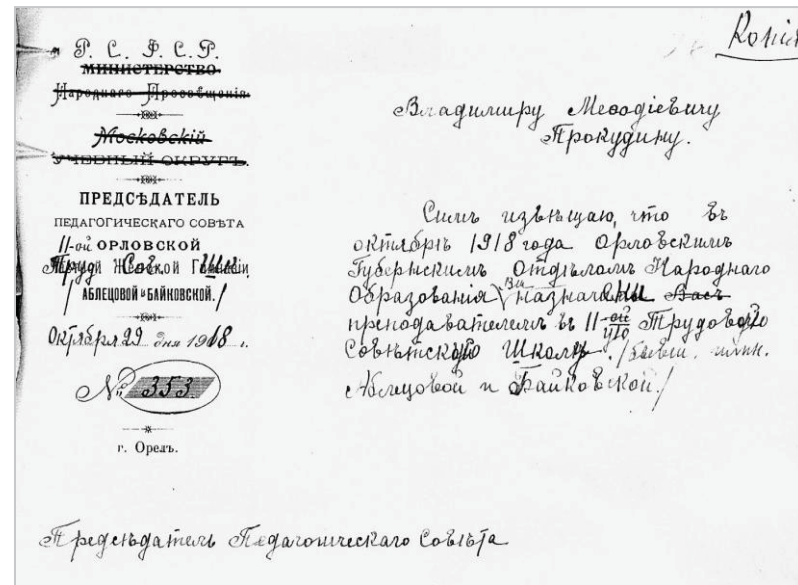 Копія
Р. С. Ф. С. Р.
МИНИСТЕРСТВО
Народнаго Просвѣщенія.
Московскій
УЧЕБНЫЙ ОКРУГЪ.
ПРЕДСѢДАТЕЛЬ
ПЕДАГОГИЧЕСКАГО СОВѢТА
11-ой ОРЛОВСКОЙ
Труд. Сов. Шк.
/АБЛЕЦОВОЙ и БАЙКОВСКОЙ./
Октября 29 дня 1918 г.
№ 353
г. Орелъ.
Владимиру Меѳодіевичу
Прокудину.
Симъ извѣщаю, что въ
октябрѣ 1918 года Орловскимъ
Губернскимъ Отдѣломъ Народнаго
Образованія Вы назначены Васъ
преподавателемъ въ 11-ой Трудовую
Совѣтскую Школу. /бывш. гимн.
Аблецовой и Байковской/
Предсѣдатель Педагогическаго Совѣта